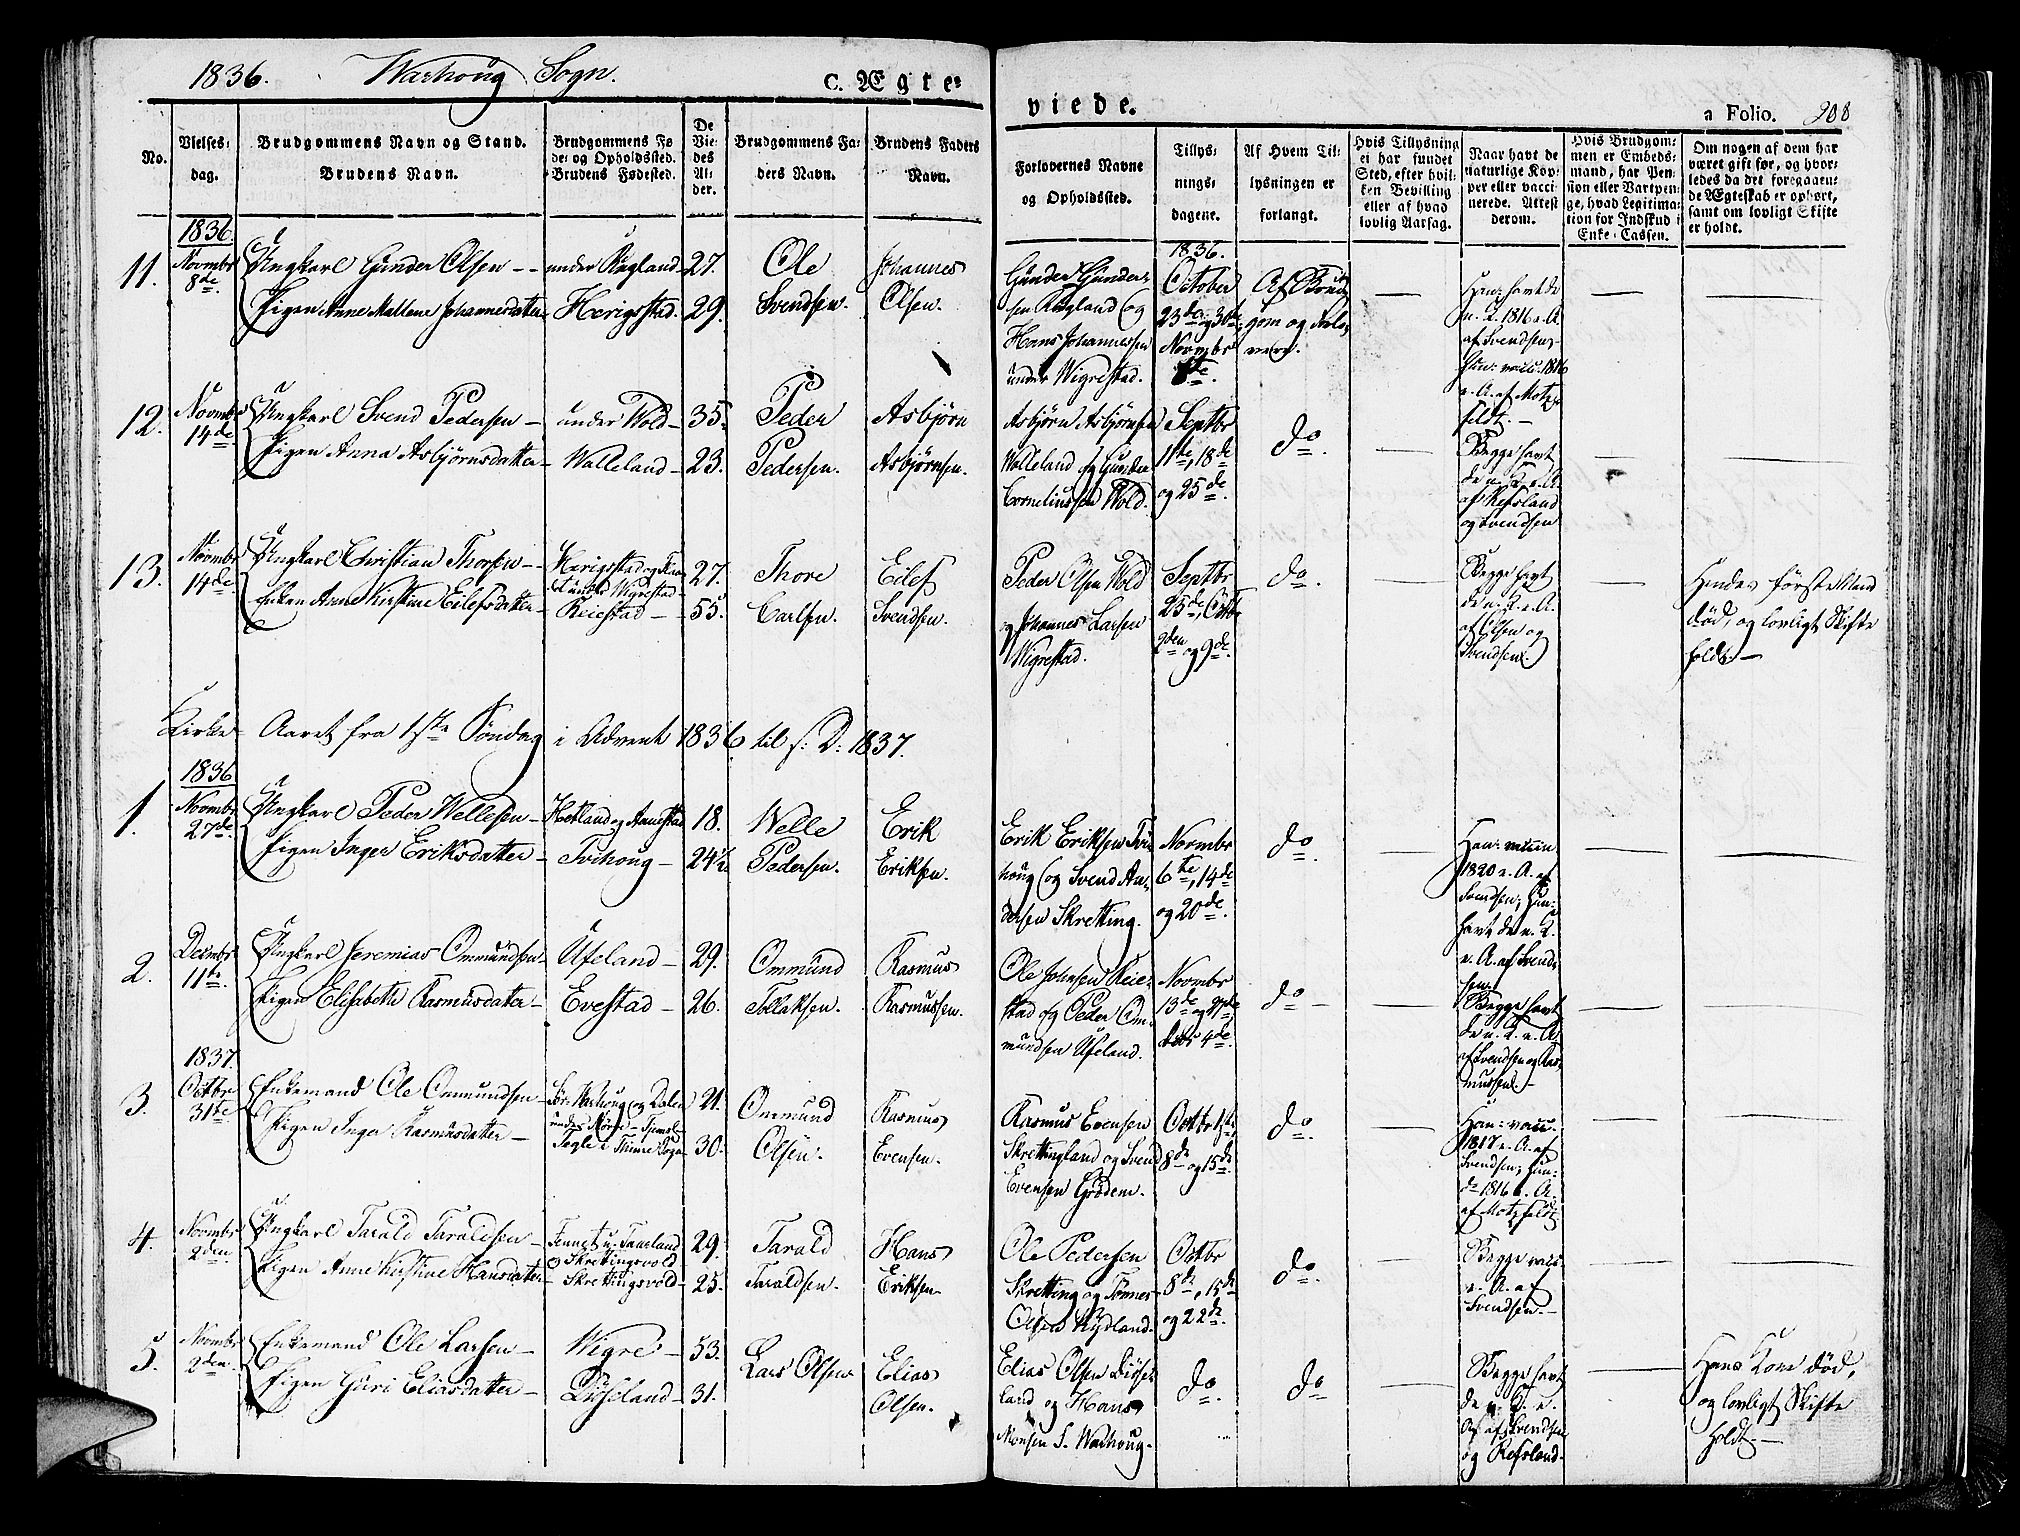 1836. Warhoug Sogn. C. Ægte-
viede. a Folio. 208
No.
Vielses-
dag.
Brudgommens Navn og Stand.
Brudens Navn.
Brudgommens Fø
de- og Opholdssted.
Brudens Fødested.
De
Vie-
des
Al-
der.
Brudgommens Fa-
ders Navn.
Brudens Faders
Navn.
Forlovernes Navne
og Opholdssted.
Tillys-
nings-
dagene.
Af Hvem Til-
lysningen er
forlangt.
Hvis Tillysning
ei har fundet
Sted, efter hvil-
ken Bevilling
eller af hvad
lovlig Aarsag.
Naar havt de
naturlige Kop-
per eller vacci-
nerede. Attest
derom.
Hvis Brudgom-
men er Embeds-
mand, har Pen-
sion eller Vartpen-
ge, hvad Legitima-
tion for Indskud i
Enke-Cassen.
Om nogen af dem har
været gift før, og hvor-
ledes da det foregaaen-
de Ægteskab er ophørt,
samt om lovligt Skifte
er holdt.
1836.
11.
Novmbr
8de.
Ungkarl Gunder Olsen -
Pigen Anne Mallene Johannesdatter
under Ringland
Herigstad.
27.
29.
Ole
Svendsen.
Johannes
Olsen.
Gunder Gunder-
sen Ringland og
Hans Johannessen
under Wigrestad.
1836.
October
23de, 30te,
Novmbr
6te.
Af Brud-
gom og Forlo-
vere.
Han: havt de
n. K. 1816 v. A.
af Svendsen,
Hun: vacc. 1816
v. A. af Motz-
feldt. -
12.
Novmbr
14de
Ungkarl Svend Pedersen -
Pigen Anna Asbjørnsdatter -
under Wold -
Walleland -
35.
23.
Peder
Pedersen.
Asbjørn
Asbjørnsen.
Asbjørn Asbjørnsen
Walleland og Gunder
Corneliussen Wold.
Septbr
11te, 18de
og 25de.
do.
Begge havt
de n. K. v. A.
af Refsland
og Svendsen
13.
Novmbr
14de
Ungkarl Christian Thorsen -
Enken Anne Kirstine Eilefsdatter -
Herigstad og
under Wigrestad -
Reiestad -
27.
55.
Thore
Carlsen.
Eilef
Svendsen.
Peder Olsen Wold
og Johannes Larsen
Wigrestad.
Septbr
25de, Octbr
2den og 9de.
do.
Begge havt
de n. K. v. A.
af Olsen og
Svendsen.
Hendes første Mand
død, og lovligt Skifte
holdt. -
Kirke-Aaret fra 1ste Søndag i Advent 1836 til s: D: 1837.
1836
1.
Novmbr
27de.
Ungkarl Peder Wellesen -
Pigen Inger Eriksdatter -
Hetland og Annestad
Tvihoug -
18.
24½.
Welle
Pedersen.
Erik
Eriksen.
Erik Eriksen Tvi-
houg og Svend An-
dersen Skretting.
Novmbr
6te, 14de
og 20de.
do.
Han: vaccin.
1820 v. A. af
Svendsen; Hun:
havt de n. K.
v. A. af Svend-
sen.
2.
Decmbr
11te.
Ungkarl Jeremias Ommundsen
Pigen Elisabeth Rasmusdatter -
Ufeland -
Evestad -
29.
26.
Ommund
Tollaksen.
Rasmus
Rasmussen.
Ole Johnsen Reie-
stad og Peder Om-
mundsen Ufeland.
Novmbr
13de og 27de
Decbr 4de.
do -
Begge havt
de n. K. v. A.
af Svendsen og Ras-
mussen. -
1837.
3.
Octbr
31te.
Enkemand Ole Ommundsen -
Pigen Inger Rasmusdatter -
Sør-Warhoug og Dalen
under Nørre-
Fogle i Thime Sogn
21.
30.
Ommund
Olsen.
Rasmus
Evensen.
Rasmus Evensen
Skrettingland og Svend
Evensen Grødem.
Octbr 1ste,
8de og 15de.
do.
Han: vacc.
1817 v. A. af
Svendsen; Hun:
do 1816 v. A.
af Motzfeldt
4.
Novmbr
2den.
Ungkarl Tarald Taraldsen -
Pigen Anne Kirstine Hansdatter
u. Taarland
og Skrettingsvold
Skrettingsvold -
29.
25.
Tarald
Taraldsen.
Hans
Eriksen
Ole Pedersen
Skretting og Tønnes
Olsen Rydland.
Octbr
8de, 15de
og 22de.
do.
Begge vacc.
v. A. af
Svendsen. -
5.
Novmbr
2den.
Enkemand Ole Larsen -
Pigen Guri Eliasdatter -
Wigre -
Liseland -
53.
31.
Lars Olsen
Elias
Olsen.
Elias Olsen
land og Hans
Monsen S. Warhoug.
do.
do
Begge havt
de n. K. v.
A. af Svendsen
og Refsland.
Hans Kone død,
og lovligt Skifte
holdt. -